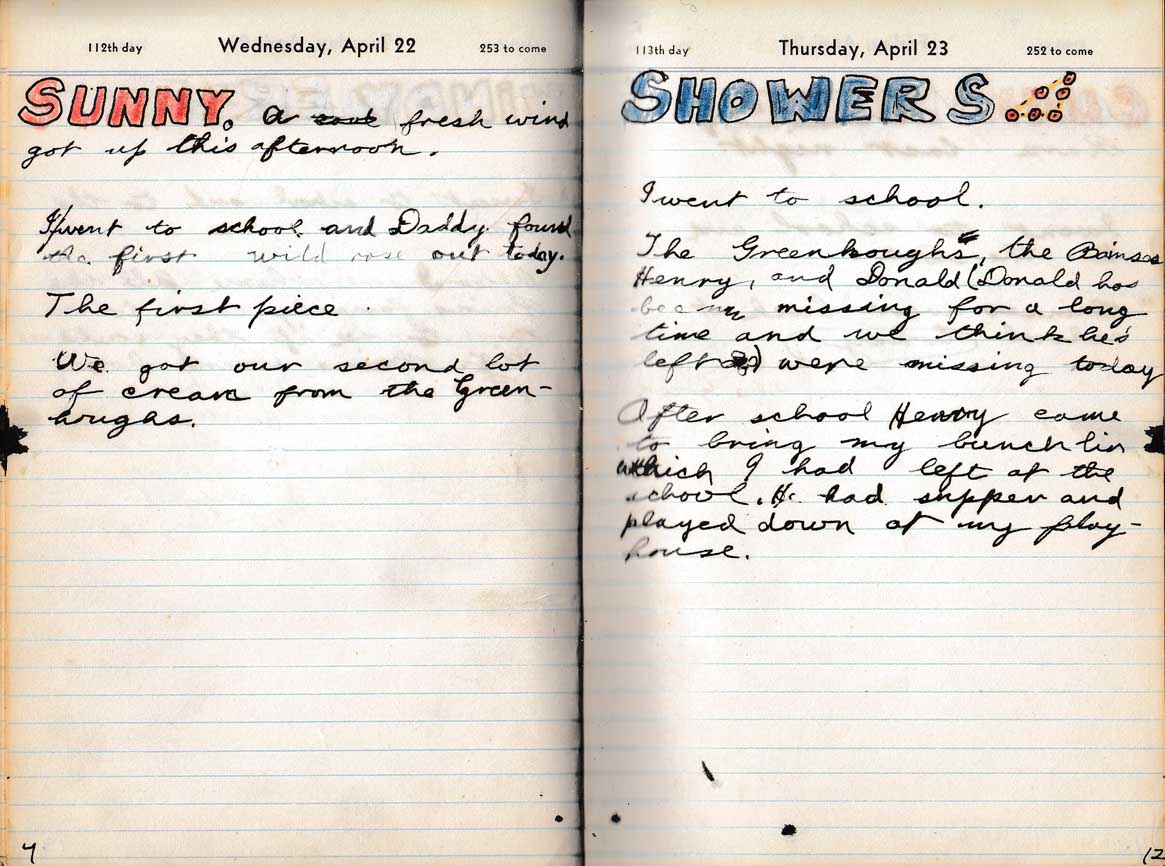 112th day Wednesday, April 22 253 to come
SUNNY. A fresh wind
got up this afternoon.
I went to school and Daddy found
the first wild rose out today.
The first piece.
We got our second lot
of cream from the Green-
houghs.
4
113th day Thursday, April 23 252 to come
SHOWERS
I went to school.
The Greenhoughs, the Bainses
Henry, and Donald (Donald has
been missing for a long
time and we think he's
left) were missing today
After school Henry came
to bring my lunch tin
which I had left at the
school. He had supper and
played down at my play-
house.
12